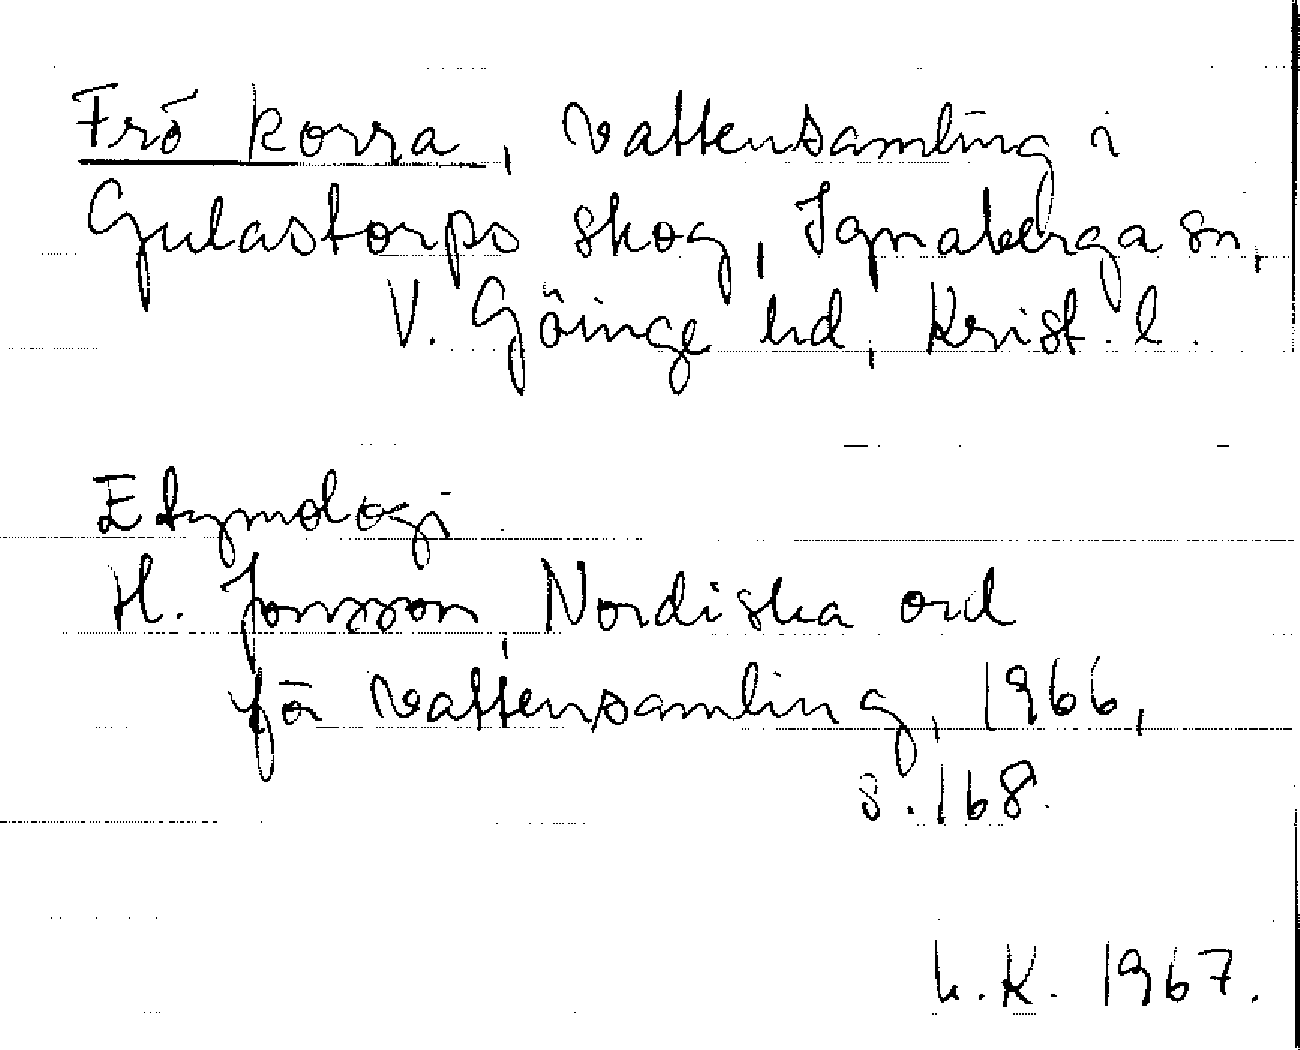 Frö korra, vattensamling i
Gulastorps skog, Ignaberga sn,
V. Göinge hd, Krist. l.
Etymologi
H. Jonsson, Nordiska ord
för vattensamling, 1966,
s. 168.
h.K. 1967.